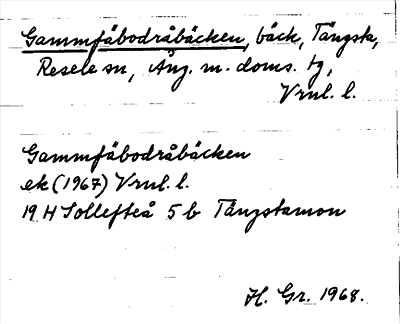 Gammfäbodråbäcken, bäck, Tängsta,
Resele sn, Ång. m. doms. tg,
Vrnl. l.
Gammfäbodråbäcken
ek (1967) Vrnl. l.
19 H Sollefteå 5 b Tängstamon
H. Gr. 1968.